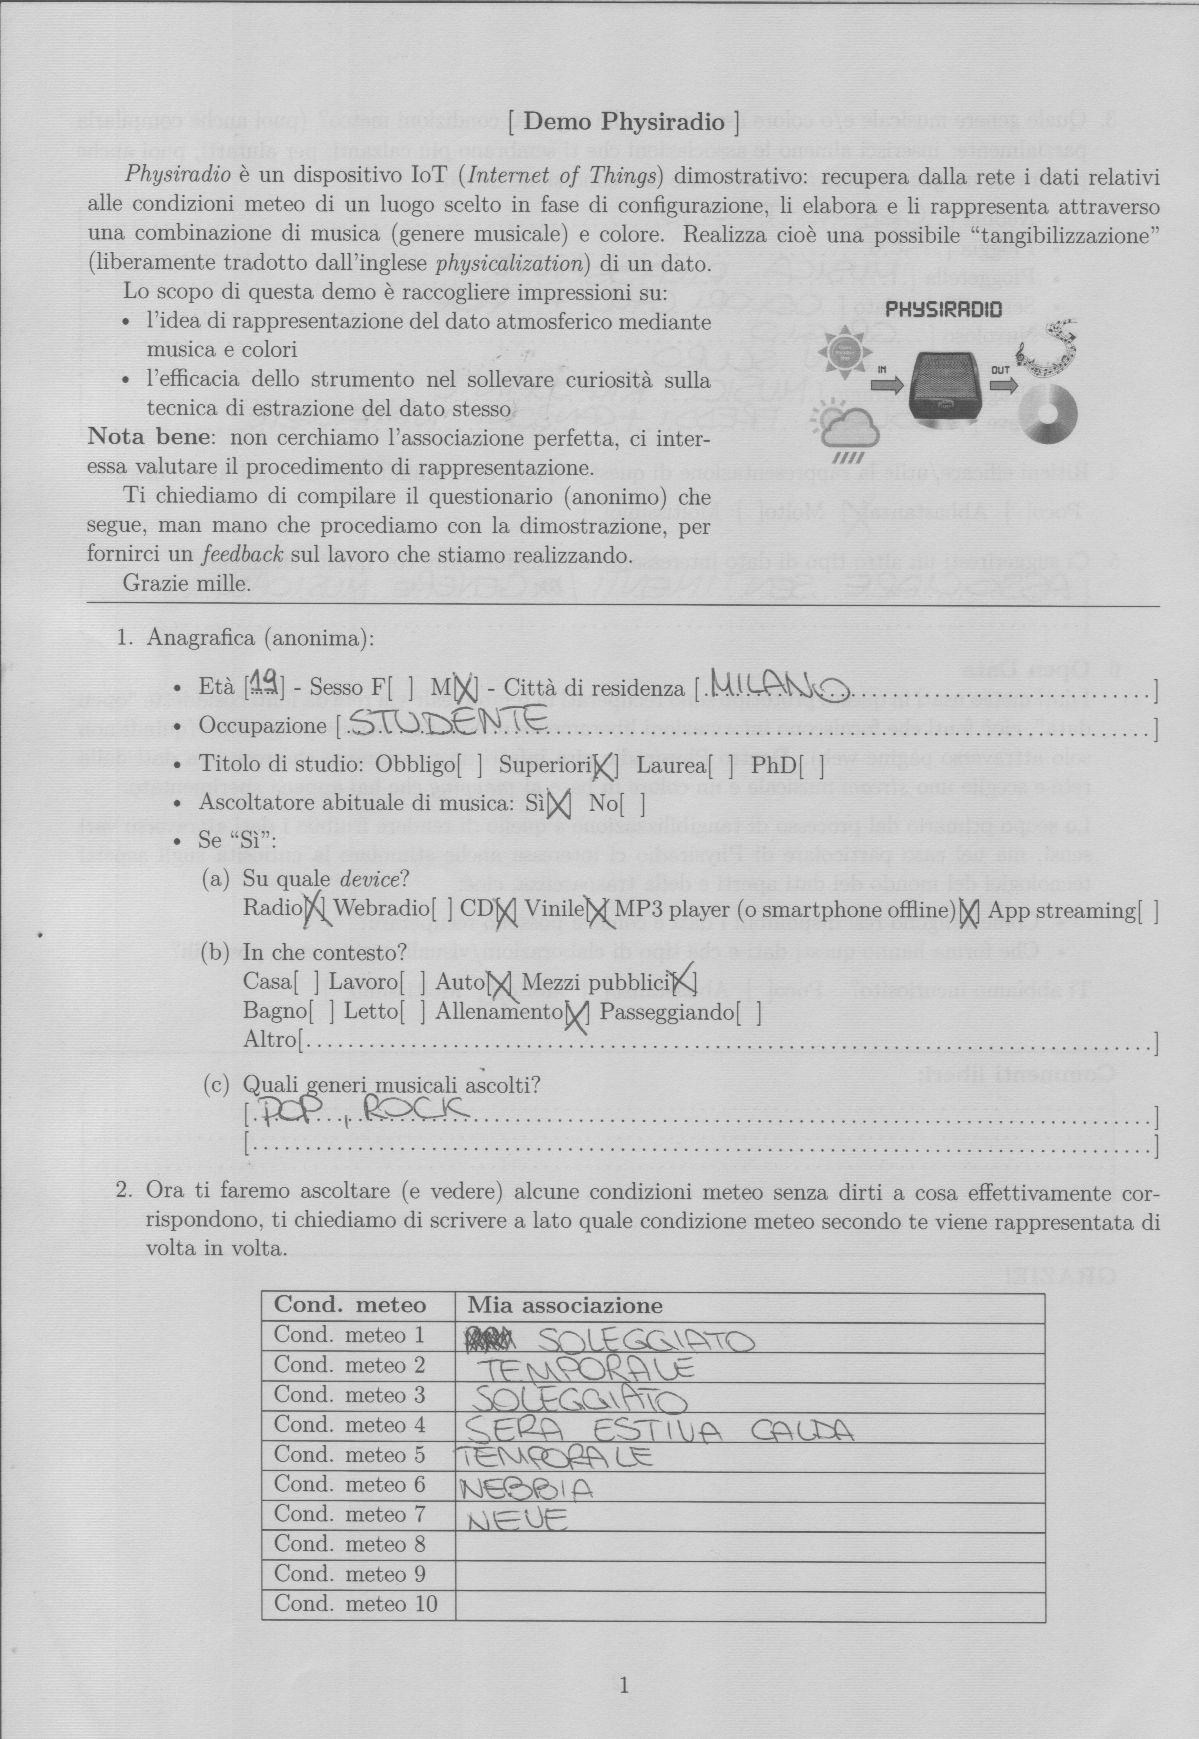 [ Demo Physiradio ]
Physiradio è un dispositivo IoT (Internet of Things) dimostrativo: recupera dalla rete i dati relativi
alle condizioni meteo di un luogo scelto in fase di configurazione, li elabora e li rappresenta attraverso
una combinazione di musica (genere musicale) e colore. Realizza cioè una possibile “tangibilizzazione”
(liberamente tradotto dall'inglese physicalization) di un dato.
Lo scopo di questa demo è raccogliere impressioni su:
• l'idea di rappresentazione del dato atmosferico mediante
musica e colori
• l'efficacia dello strumento nel sollevare curiosità sulla
tecnica di estrazione del dato stesso
Nota bene: non cerchiamo l'associazione perfetta, ci inter-
essa valutare il procedimento di rappresentazione.
Ti chiediamo di compilare il questionario (anonimo) che
segue, man mano che procediamo con la dimostrazione, per
fornirci un feedback sul lavoro che stiamo realizzando.
Grazie mille.
PHYSIRADIO
IN
OUT
1. Anagrafica (anonima):
• Età [19] - Sesso F[ ] M[X] - Città di residenza [MILANO]
• Occupazione [STUDENTE]
• Titolo di studio: Obbligo[ ] Superiori[X] Laurea[ ] PhD[ ]
• Ascoltatore abituale di musica: Sì[X] No[ ]
• Se “Sì”:
(a) Su quale device?
Radio[X] Webradio[ ] CD[X] Vinile[X] MP3 player (o smartphone offline)[X] App streaming[ ]
(b) In che contesto?
Casa[ ] Lavoro[ ] Auto[X] Mezzi pubblici[X]
Bagno[ ] Letto[ ] Allenamento[X] Passeggiando[ ]
Altro[ ]
(c) Quali generi musicali ascolti?
[POP, ROCK]
[ ]
2. Ora ti faremo ascoltare (e vedere) alcune condizioni meteo senza dirti a cosa effettivamente cor-
rispondono, ti chiediamo di scrivere a lato quale condizione meteo secondo te viene rappresentata di
volta in volta.
Cond. meteo Mia associazione
Cond. meteo 1 SOLEGGIATO
Cond. meteo 2 TEMPORALE
Cond. meteo 3 SOLEGGIATO
Cond. meteo 4 SERA ESTIVA CALDA
Cond. meteo 5 TEMPORALE
Cond. meteo 6 NEBBIA
Cond. meteo 7 NEVE
Cond. meteo 8
Cond. meteo 9
Cond. meteo 10
1